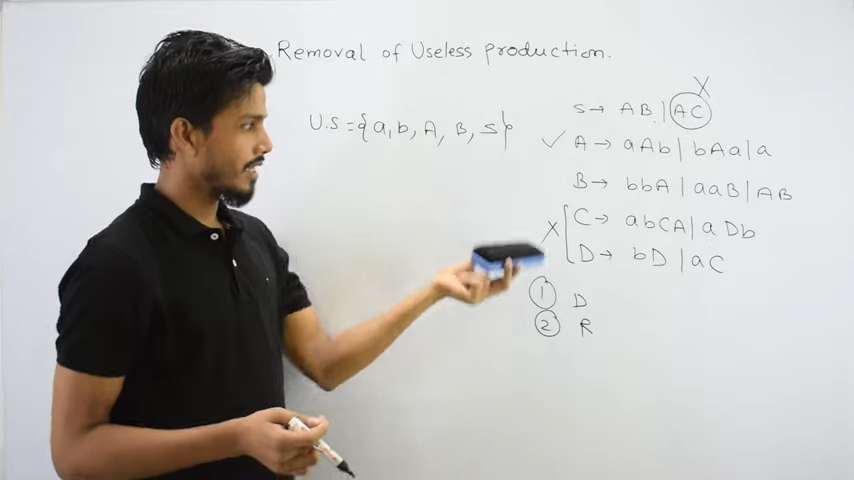 Removal of Useless production.
U.S = {a, b, A, B, S}
X
S → AB | AC
✓ A → aAb | bAa | a
B → bbA | aaB | AB
X C → abCA | aDb
D → bD | aC
1 D
2 R